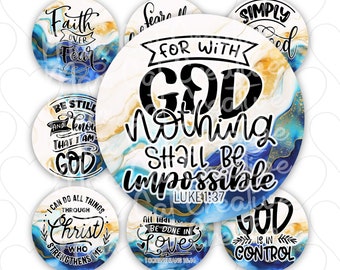 Faith
over
Fear
SIMPLY
FOR WITH
GOD
nothing
SHALL BE
impossible
LUKE 1:37
BE STILL
AND know
THAT I AM
GOD
I CAN DO ALL THINGS
THROUGH
Christ
WHO
STRENGTHENS ME
BE DONE IN
Love
GOD
IS IN
CONTROL